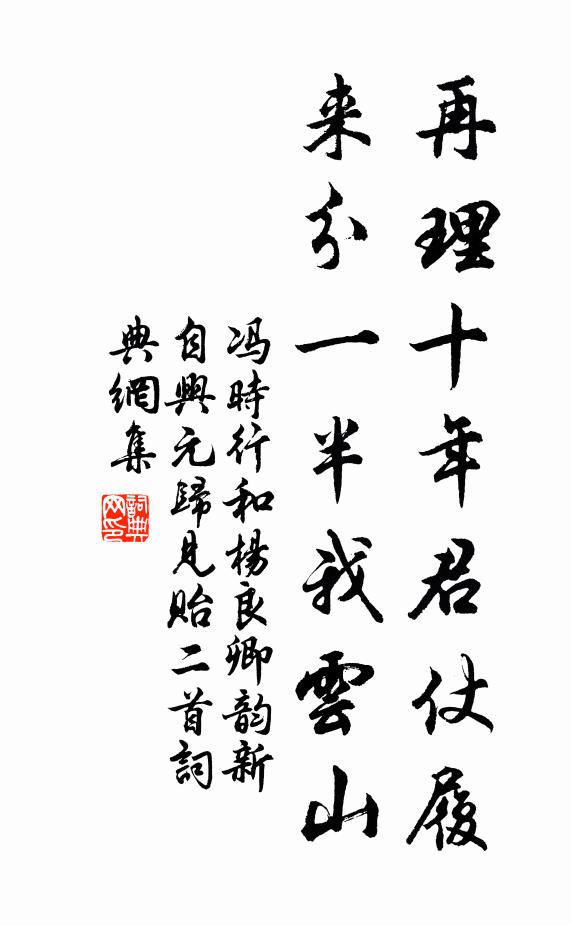 再理十年君仗履
来分一半我雲山
冯時行和楊良卿韵新
自興元歸見貽二首詞
典網集
詞典网印